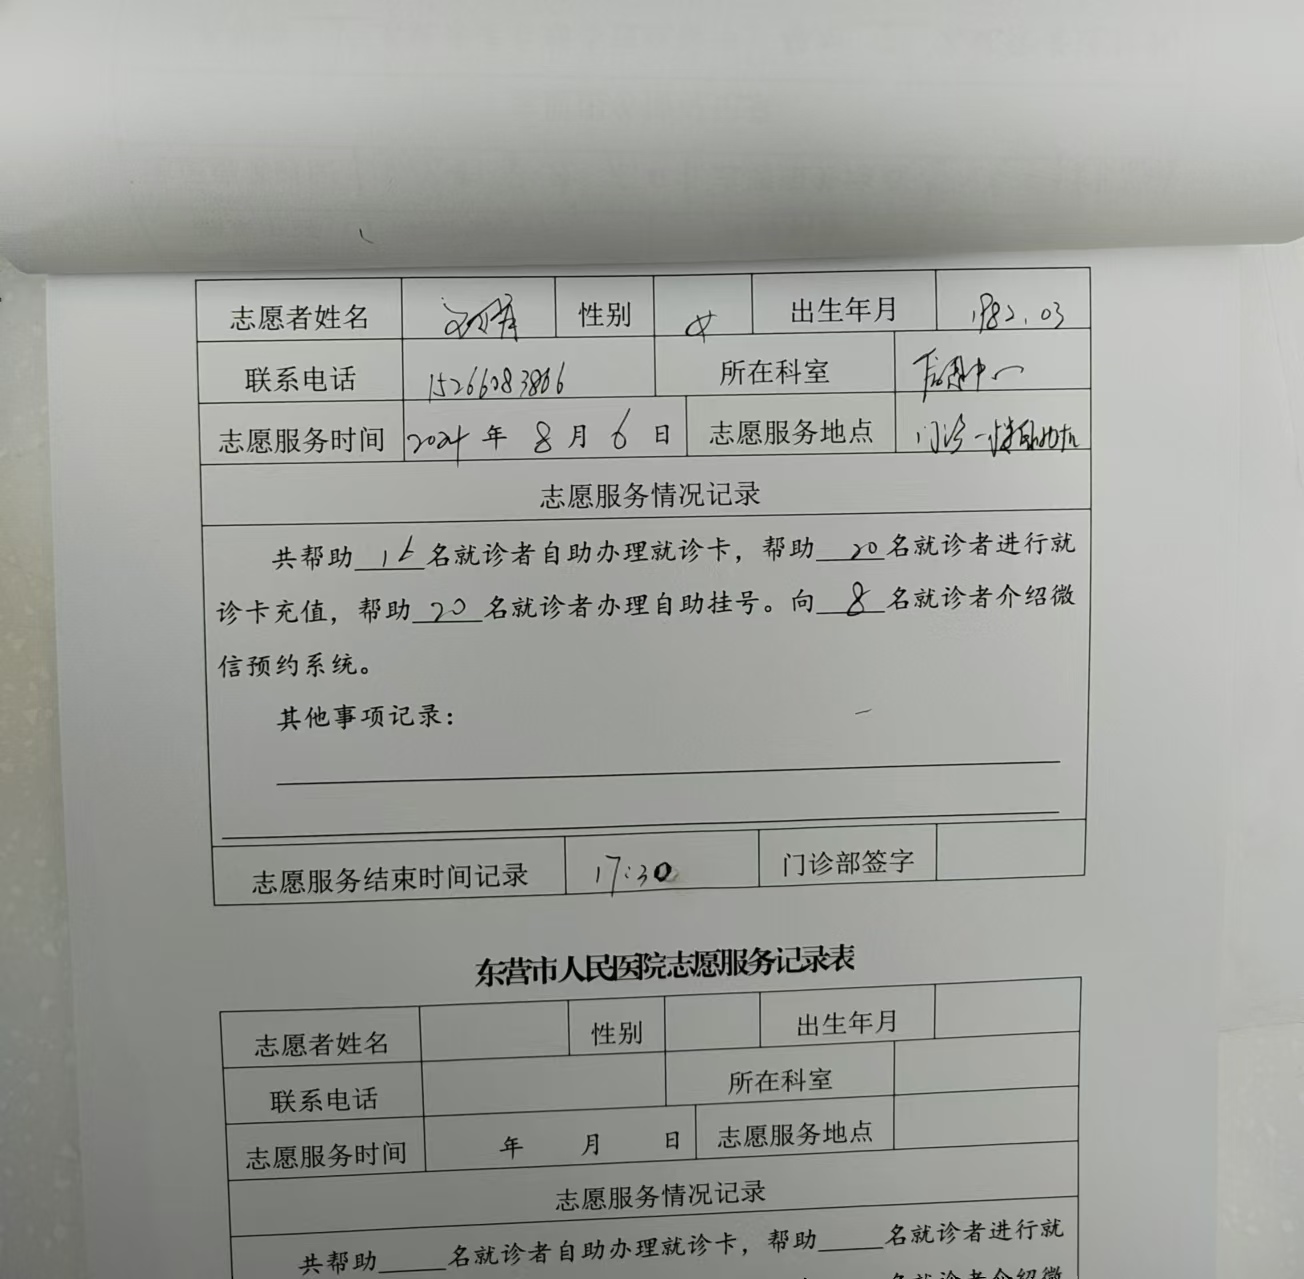 志愿者姓名 性别 女 出生年月 1982.03
联系电话 15266083806 所在科室
志愿服务时间 2024 年 8 月 6 日 志愿服务地点 门诊一楼自助机
志愿服务情况记录
共帮助 16 名就诊者自助办理就诊卡，帮助 20 名就诊者进行就
诊卡充值，帮助 20 名就诊者办理自助挂号。向 8 名就诊者介绍微
信预约系统。
其他事项记录：
志愿服务结束时间记录 17:30 门诊部签字
东营市人民医院志愿服务记录表
志愿者姓名 性别 出生年月
联系电话 所在科室
志愿服务时间 年 月 日 志愿服务地点
志愿服务情况记录
共帮助____名就诊者自助办理就诊卡，帮助____名就诊者进行就
名就诊者介绍微